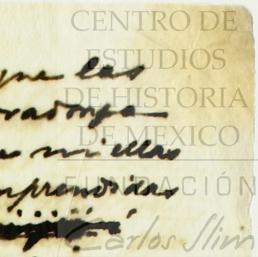 CENTRO DE
ESTUDIOS
DE HISTORIA
DE MEXICO
FUNDACIÓN
Carlos Slim
que las
millas
mprendidas